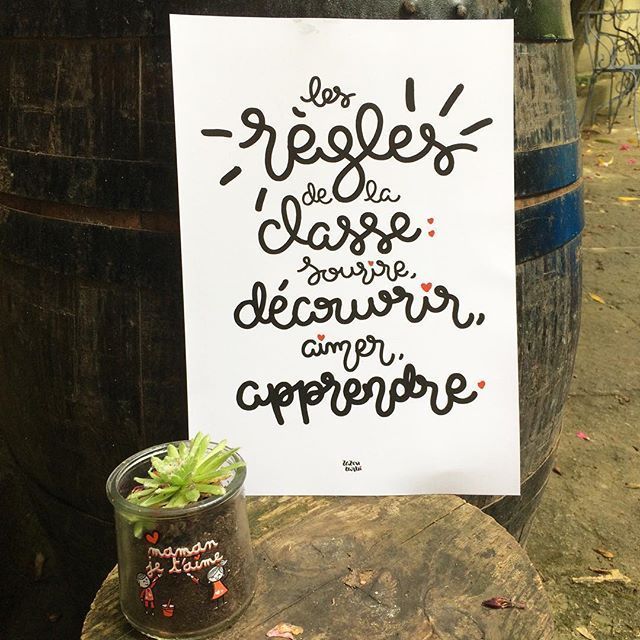 les
règles
de la
classe:
sourire,
découvrir,
aimer,
apprendre.
maman
je t'aime